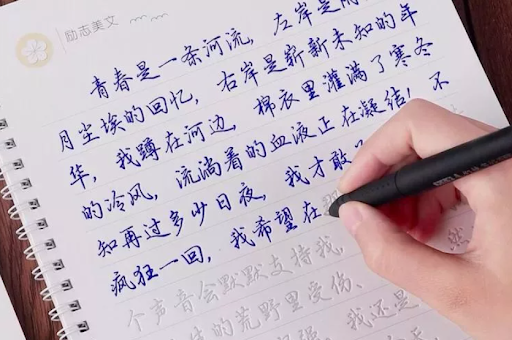 励志美文
青春是一条河流，左岸是
月尘埃的回忆，右岸是崭新未知的年
华，我蹲在河边，棉衣里灌满了寒冬
的冷风，流淌着的血液正在凝结！不
知再过多少日夜，我才敢
疯狂一回，我希望在那
个声音会默默支持我，
的荒野里受伤、
我还是